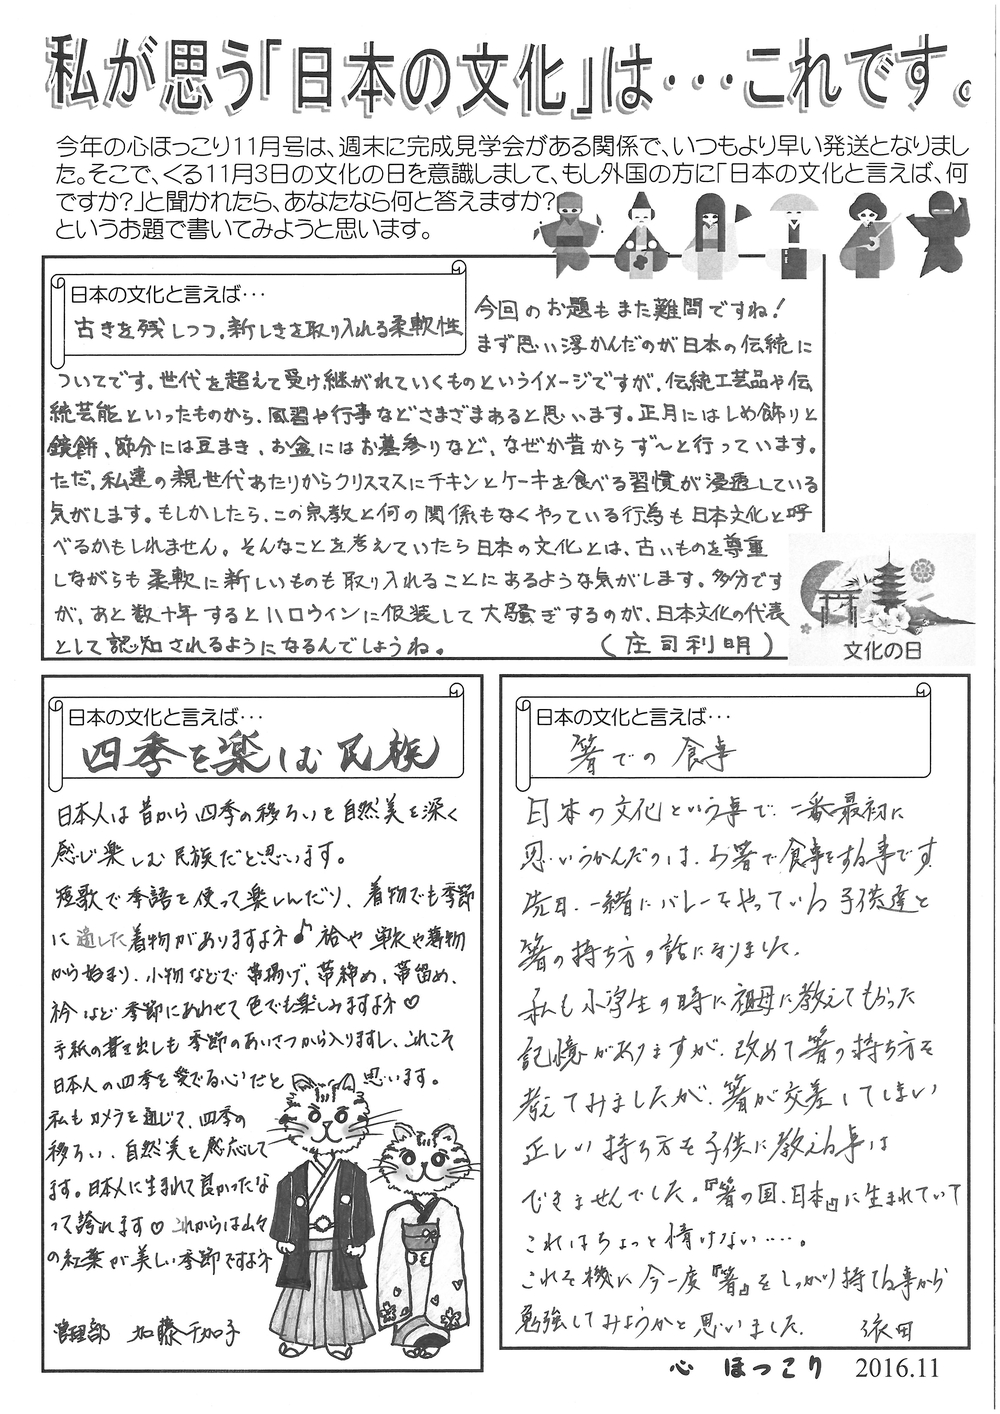 私が思う「日本の文化」は・・・これです。
今年の心ほっこり11月号は、週末に完成見学会がある関係で、いつもより早い発送となりまし
た。そこで、くる11月3日の文化の日を意識しまして、もし外国の方に「日本の文化と言えば、何
ですか?」と聞かれたら、あなたなら何と答えますか?
というお題で書いてみようと思います。
日本の文化と言えば・・・
古きを残しつつ、新しきを取り入れる柔軟性
今回のお題もまた難問ですね!
まず思い浮かんだのが日本の伝統に
ついてです。世代を超えて受け継がれていくものというイメージですが、伝統工芸品や伝
統芸能といったものから、風習や行事などさまざまあると思います。正月にはしめ飾りと
鏡餅、節分には豆まき、お盆にはお墓参りなど、なぜか昔からず〜と行っています。
ただ、私達の親世代あたりからクリスマスにチキンとケーキを食べる習慣が浸透している
気がします。もしかしたら、この宗教と何の関係もなくやっている行為も日本文化と呼
べるかもしれません。そんなことを考えていたら日本の文化とは、古いものを尊重
しながらも柔軟に新しいものも取り入れることにあるような気がします。多分です
が、あと数十年するとハロウィンに仮装して大騒ぎするのが、日本文化の代表
として認知されるようになるんでしょうね。 (庄司利明)
文化の日
日本の文化と言えば・・・
四季を楽しむ民族
日本人は昔から四季の移ろいを自然美を深く
感じ楽しむ民族だと思います。
短歌で季語を使って楽しんだり、着物でも季節
に適した着物がありますよネ♪袷や単衣や薄物
から始まり、小物などで帯揚げ、帯締め、帯留め、
衿など季節にあわせて色でも楽しみますよネ♡
手紙の書き出しも季節のあいさつから入りますし、これこそ
日本人の四季を愛でる心だと思います。
私もカメラを通じて、四季の
移ろい、自然美を感応して
ます。日本人に生まれて良かったな
って誇れます♡これからは山々
の紅葉が美しい季節ですよネ
管理部 加藤千加子
日本の文化と言えば・・・
箸での食事
日本の文化という事で、一番最初に
思いうかんだのは、お箸で食事をする事です。
先日、一緒にバレーをやっている子供達と
箸の持ち方の話になりました。
私も小学生の時に祖母に教えてもらった
記憶がありますが、改めて箸の持ち方を
考えてみましたが、箸が交差してしまい
正しい持ち方を子供に教える事は
できませんでした。『箸の国、日本』に生まれていて
これはちょっと情けない……。
これを機に今一度『箸』をしっかり持てる事から
勉強してみようかと思いました。 依田
心 ほっこり 2016.11